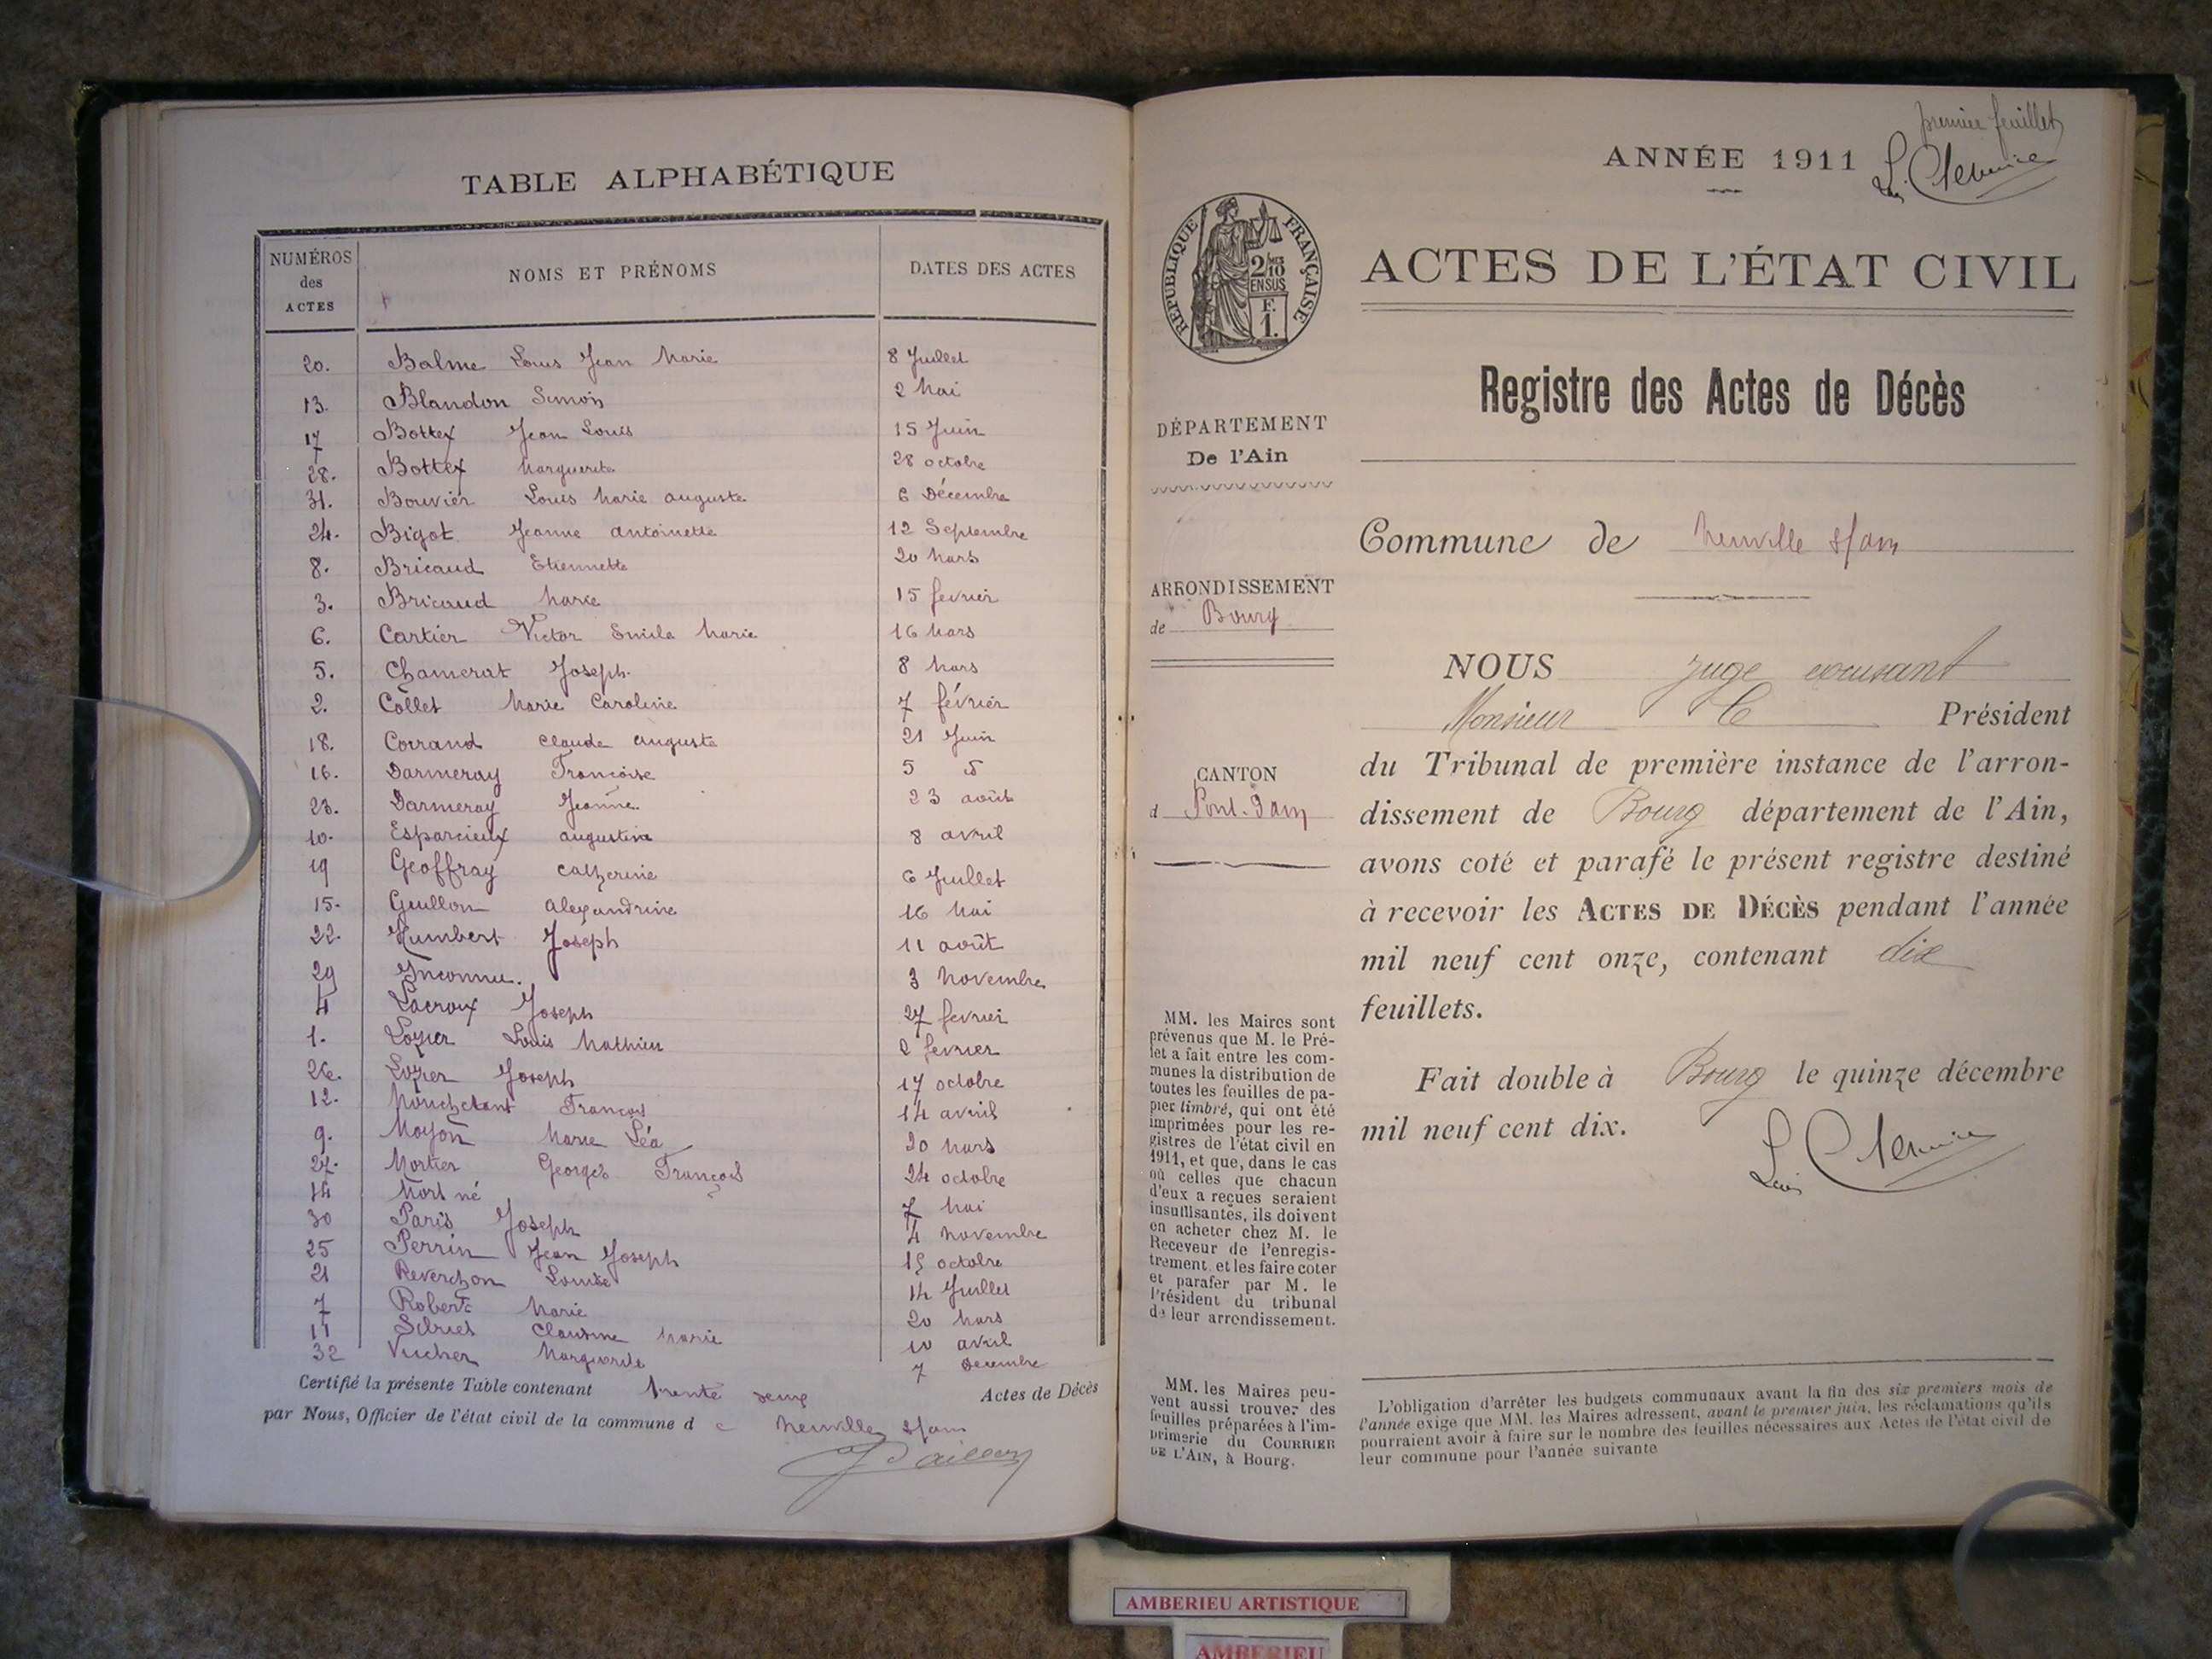 TABLE ALPHABÉTIQUE
NUMÉROS des ACTES NOMS ET PRÉNOMS DATES DES ACTES
20. Balme Louis Jean Marie 8 Juillet
13. Blandon Simon 2 Mai
17 Bottex Jean Louis 15 Juin
28. Bottex Marguerite 28 octobre
31. Bouvier Louis Marie auguste 6 Décembre
24. Bigot Jeanne antoinette 12 Septembre
8. Bricaud Etiennette 20 Mars
3. Bricaud Marie 15 fevrier
6. Cartier Victor Emile Marie 16 Mars
5. Chamerat Joseph. 8 Mars
2. Collet Marie Caroline 7 février
18. Corrand claude auguste 21 Juin
16. Darmeray Françoise 5
23. Darmeray Jeanne. 23 août
10. Esparcieux augustine 8 avril
19 Geoffray catherine 6 Juillet
15. Guillon alexandrine 16 Mai
22. Humbert Joseph 11 août
29 Inconnu. 3 Novembre
4 Lacroix Joseph 27 fevrier
1. Lozier Louis Mathieu 2 fevrier
26. Lozier Joseph 17 octobre
12. Mouchetant François 14 avril
9. Moyon Marie Léa 20 Mars
27. Mortier Georges François 24 octobre
14 Mort né 7 Mai
30 Paris Joseph 4 Novembre
25 Perrin Jean Joseph 15 octobre
21 Reverchon Louise 14 Juillet
7 Robert Marie 20 Mars
11 Claudine Marie 10 avril
32 Vucher Marguerite 7 Decembre
Certifié la présente Table contenant trente deux Actes de Décès
par Nous, Officier de l'état civil de la commune d e Neuville s/ain
premier feuillet
ANNÉE 1911
RÉPUBLIQUE FRANÇAISE
2/10 EN SUS
F. 1.
ACTES DE L'ÉTAT CIVIL
Registre des Actes de Décès
DÉPARTEMENT
De l'Ain
Commune de Neuville s/ain
ARRONDISSEMENT
de Bourg
NOUS Juge
Monsieur le Président
du Tribunal de première instance de l'arron-
dissement de Bourg département de l'Ain,
avons coté et parafé le présent registre destiné
à recevoir les ACTES DE DÉCÈS pendant l'année
mil neuf cent onze, contenant dix
feuillets.
CANTON
d Pont-d'ain
Fait double à Bourg le quinze décembre
mil neuf cent dix.
MM. les Maires sont
prévenus que M. le Pré-
fet a fait entre les com-
munes la distribution de
toutes les feuilles de pa-
pier timbré, qui ont été
imprimées pour les re-
gistres de l'état civil en
1911, et que, dans le cas
où celles que chacun
d'eux a reçues seraient
insuffisantes, ils doivent
en acheter chez M. le
Receveur de l'enregis-
trement et les faire coter
et parafer par M. le
Président du tribunal
de leur arrondissement.
MM. les Maires peu-
vent aussi trouver des
feuilles préparées à l'im-
primerie du COURRIER
DE L'AIN, à Bourg.
L'obligation d'arrêter les budgets communaux avant la fin des six premiers mois de
l'année exige que MM. les Maires adressent, avant le premier juin, les réclamations qu'ils
pourraient avoir à faire sur le nombre des feuilles nécessaires aux Actes de l'état civil de
leur commune pour l'année suivante
AMBERIEU ARTISTIQUE
AMBERIEU